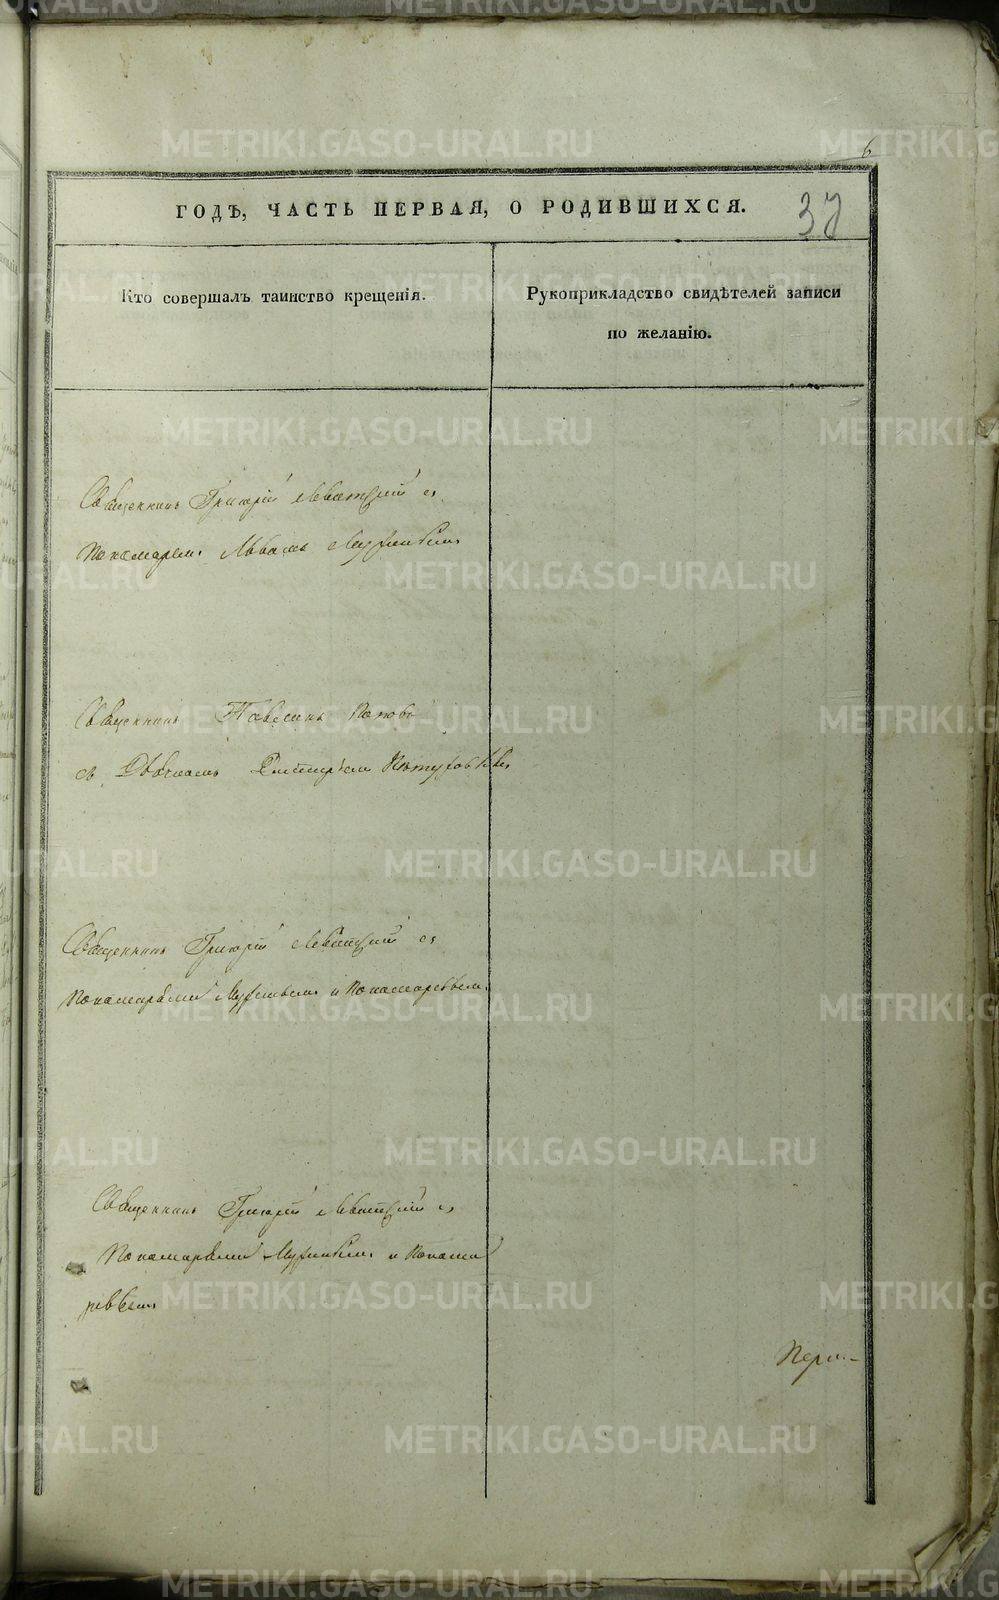 6
ГОДЪ, ЧАСТЬ ПЕРВАЯ, О РОДИВШИХСЯ.
37
Кто совершалъ таинство крещенія.
Рукоприкладство свидѣтелей записи
по желанію.
Священникъ Григорій Левитскій съ
Пономаремъ
Священникъ Павелинъ Поповъ
съ Дьячкомъ Дмитріемъ
Священникъ Григорій Левитскій съ
Пономарями и Пономаревымъ
Священникъ Григорій Левитскій съ
Пономарями и Понома
ревымъ
METRIKI.GASO-URAL.RU